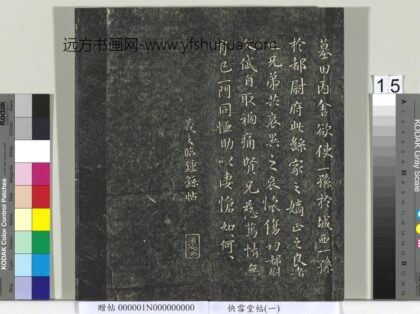 远方书画网-www.yfshuhua.com
墓田丙舍欲使一孫於城西一孫
於都尉府此繇家之嫡正之良者
兄弟共哀異之哀懷傷切都尉
文岱自取禍痛賢兄慈篤情無
有已一門同恤助以悽愴如何
羲之臨鍾繇帖
15
Kodak
Kodak Color Control Patches
KODAK Gray Scale
贈帖 000001N000000000
快雪堂帖(一)